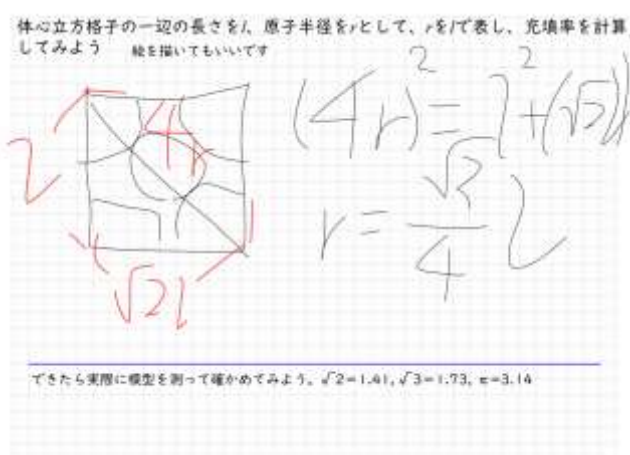 体心立方格子の一辺の長さをl、原子半径をrとして、rをlで表し、充填率を計算
してみよう 絵を描いてもいいです
4r
l
√2l
(4r)²=l²+(√2l)
r=√3/4 l
できたら実際に模型を測って確かめてみよう。√2=1.41, √3=1.73, π=3.14